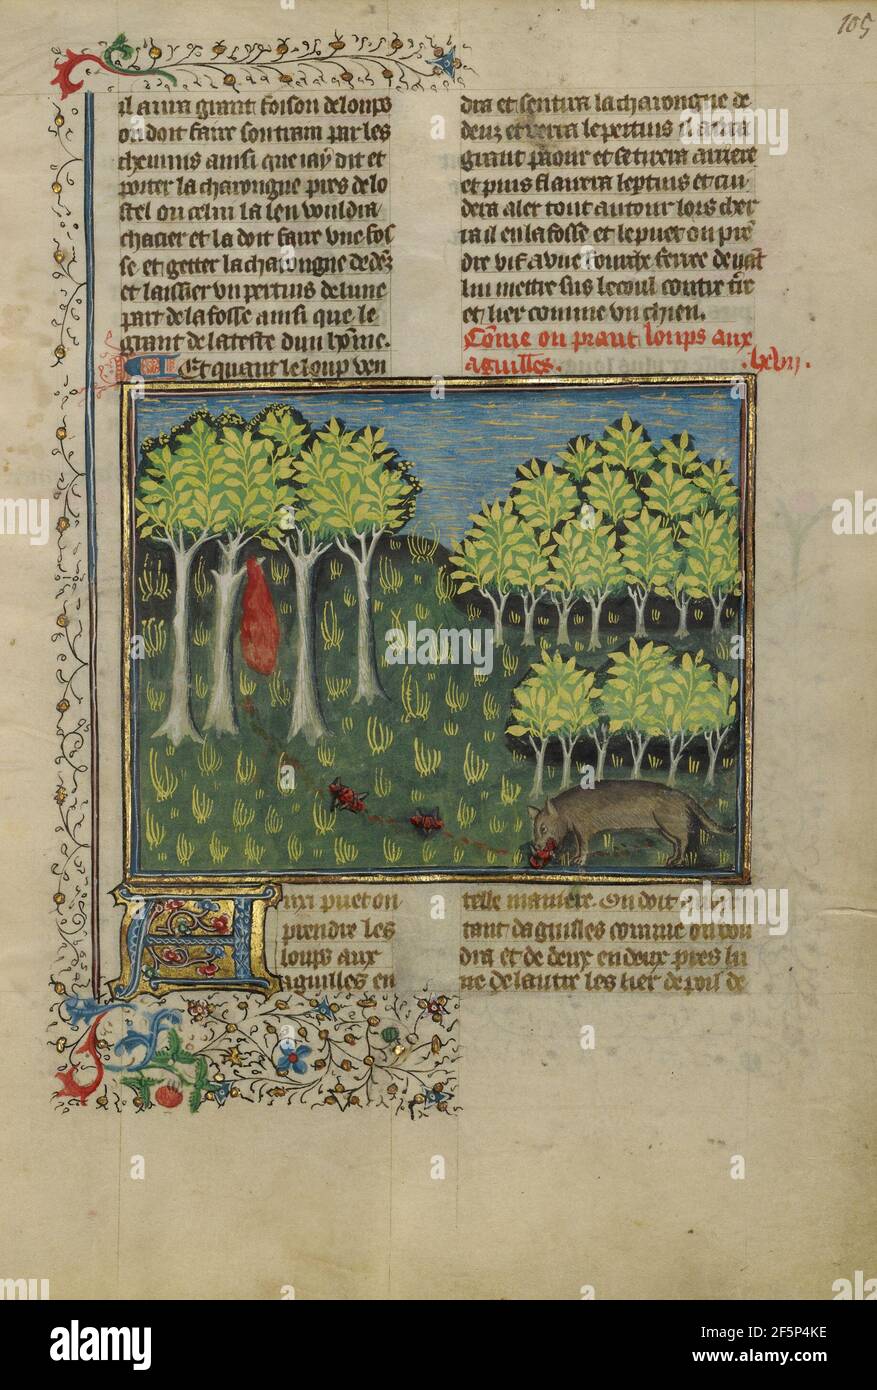 105
il aura grant foison de loups
on doit faire son train par les
chemins ainsi que iay dit et
porter la charongne pres de lo
stel ou celui la len vouldra
chacier et la doit faire vne fos
se et getter la charongne dedẽz
et laissier vn pertuis de lune
part de la fosse ainsi que le
grant de la teste dun hõme.
Et quant le loup ven
dra et sentira la charongne de
denz et verra le pertuis il aura
grant paour et se tirera arriere
et puis flairera le ptuis et cui
dera aler tout autour lors cher
ra il en la fosse et le puet on prẽ
dre vif a vne fourche ferree deuãt
lui mettre sus le coul contre tr̃e
et lier comme vn chien.
Cõme on prant loups aux
aguilles. .lxvii.
Auxi puet on
prendre les
loups aux
aguilles en
telle maniere. On doit
tant daguilles comme on vou
dra et de deux en deux pres lu
ne de lautre les lier de poil de
alamy
a
a
a
a
a
a
alamy
Image ID: 2F5P4KE
www.alamy.com